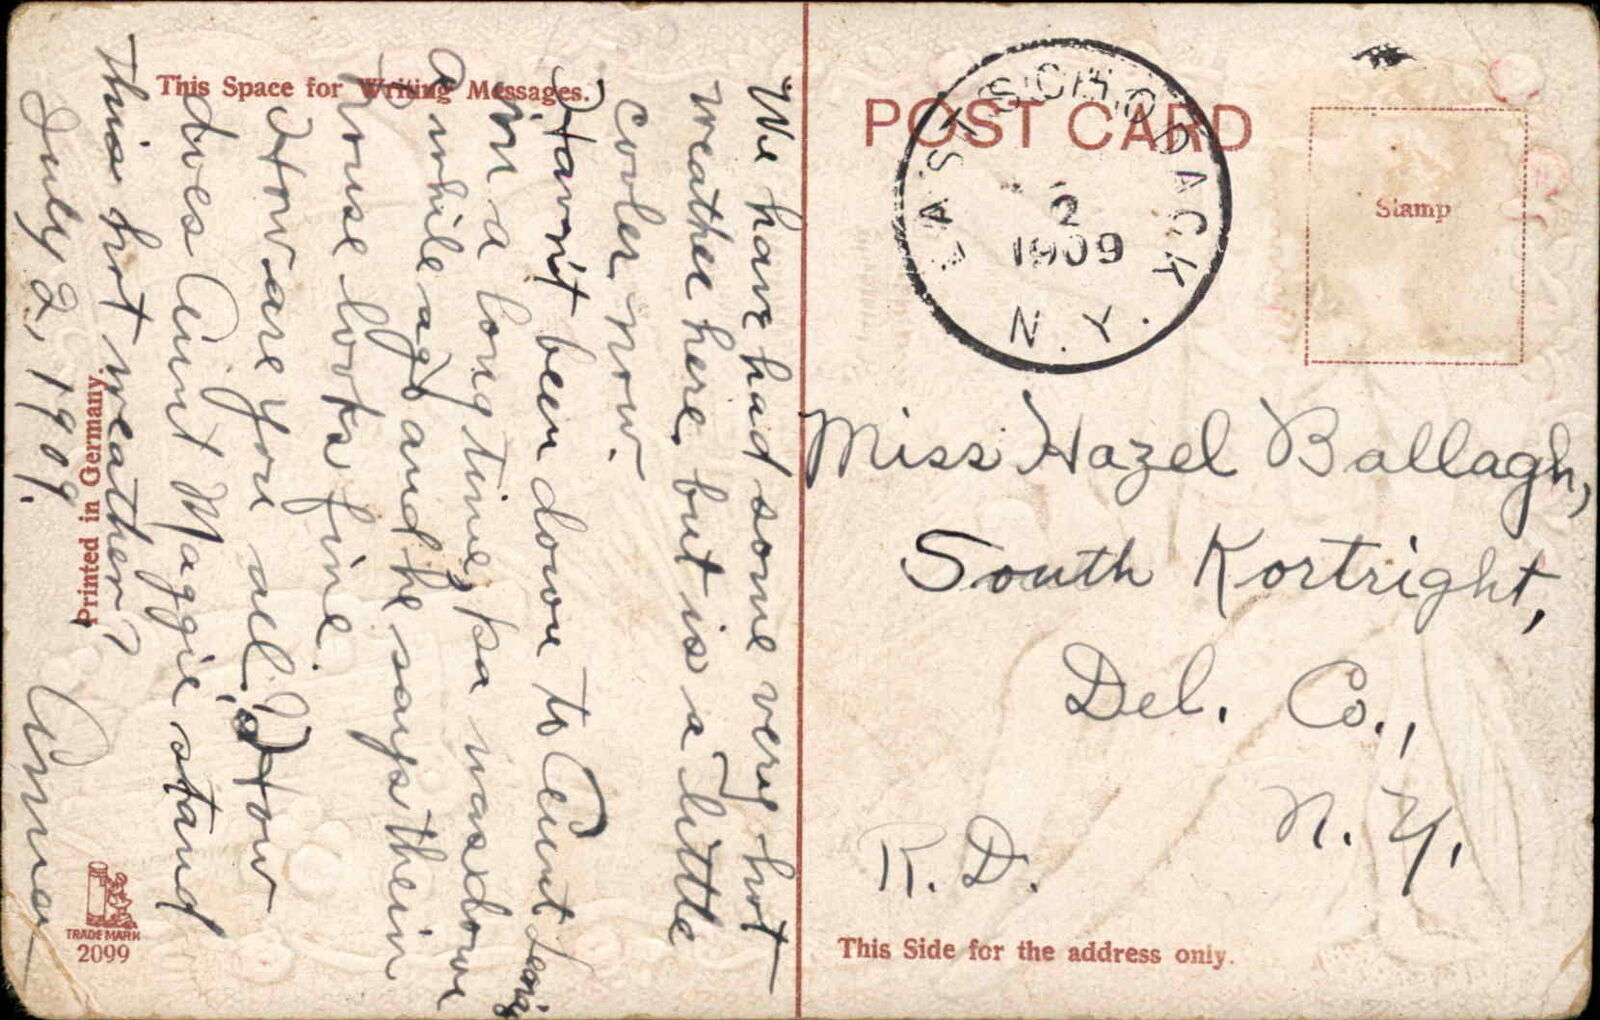 This Space for Writing Messages.
We have had some very hot
weather here, but is a little
cooler now.
Havn't been down to Aunt
in a long time, pa was down
a while ago and he says their
house looks fine.
How are you all? How
does Aunt Maggie stand
this hot weather?
July 2, 1909. Anna
Printed in Germany.
TRADE MARK
2099
POST CARD
EAST SCHODACK
2
1909
N.Y.
Stamp
Miss Hazel Ballagh,
South Kortright,
Del. Co.,
N. Y.,
R. D.
This Side for the address only.